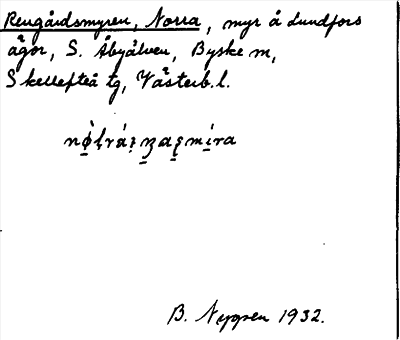 Rengårdsmyren, Norra, myr å Lundfors
ägor, S. Åbyälven, Byske m,
Skellefteå tg, Västerb. l.
B. Nygren 1932.